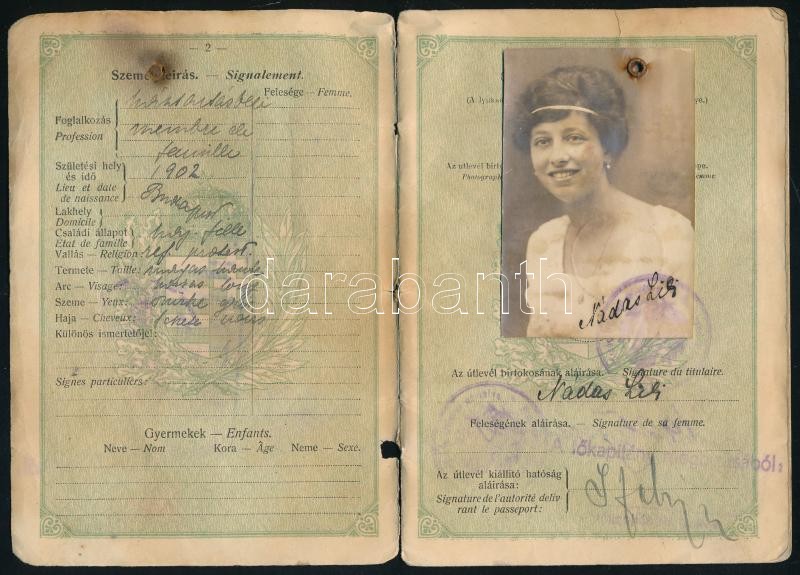 — 2 —
Szemé leirás. — Signalement.
Felesége — Femme.
háztartásbeli
Foglalkozás
Profession
membre de
famille
Születési hely
és idő
Lieu et date
de naissance
1902
Budapest
Lakhely
Domicile
Családi állapot
Etat de famille
haj. fille
Vallás — Religion: ref. protest.
Termete — Taille: magas haute
Arc — Visage: hosszas long
Szeme — Yeux: szürke gris
Haja — Cheveux: fekete noirs
Különös ismertetőjel:
Signes particuliers:
Gyermekek — Enfants.
Neve — Nom Kora — Âge Neme — Sexe.
Az útlevél birto
Photograph
femme.
Nádas Lili
Az útlevél birtokosának aláírása. — Signature du titulaire.
Nádas Lili
Feleségének aláírása. — Signature de sa femme.
Az útlevél kiállító hatóság
aláírása:
Signature de l'autorité déliv
rant le passeport:
darabanth